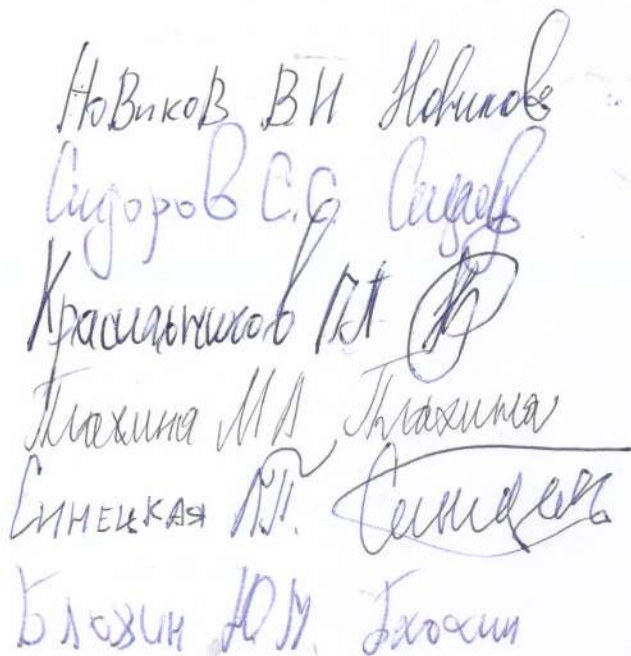 Новиков ВИ Новиков
Сидоров С.С. Сидоров
Красильников П.А.
Плахина МА Плахина
Синецкая П.П. Синецкая
Блохин Ю.М. Блохин